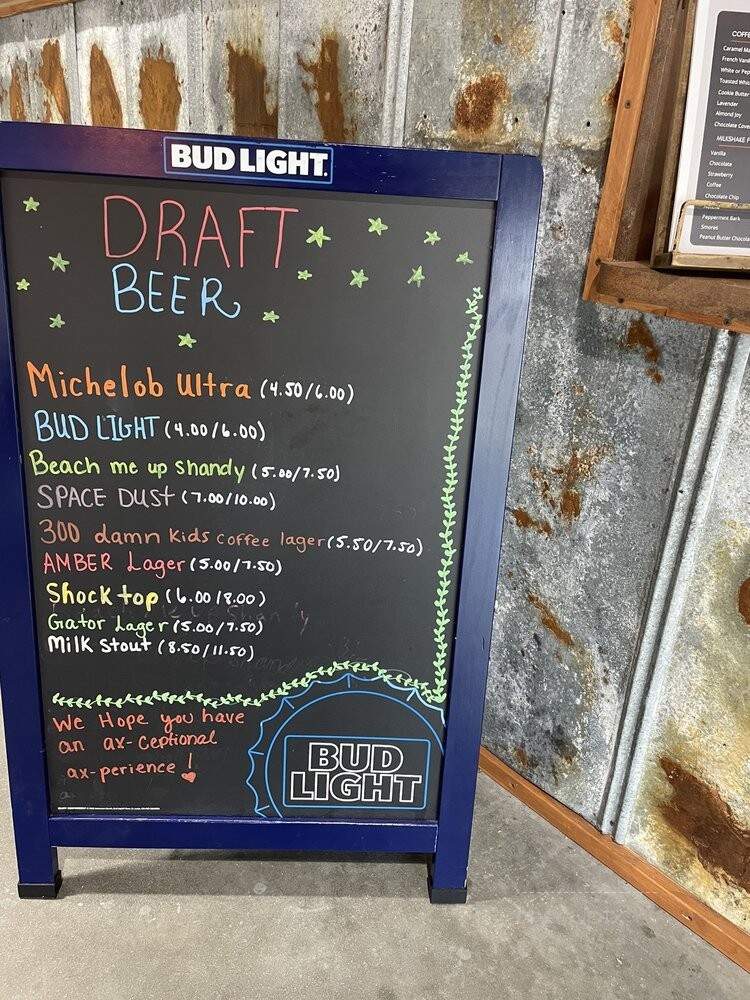 BUD LIGHT.
DRAFT
BEER
Michelob Ultra (4.50/6.00)
BUD LIGHT (4.00/6.00)
Beach me up shandy (5.00/7.50)
SPACE DUST (7.00/10.00)
300 damn kids coffee lager (5.50/7.50)
AMBER Lager (5.00/7.50)
Shock top (6.00/8.00)
Gator Lager (5.00/7.50)
Milk Stout (8.50/11.50)
We Hope you have
an ax-ceptional
ax-perience!
BUD
LIGHT
COFFE
Caramel Ma
French Vani
White or Pep
Toasted Whi
Cookie Butter
Lavender
Almond Joy
Chocolate Cove
MILKSHAKE F
Vanilla
Chocolate
Strawberry
Coffee
Chocolate Chip
Peppermint Bark
Smores
Peanut Butter Chocola